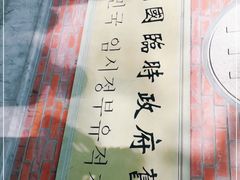 國臨時政府舊
민국 임시정부유적